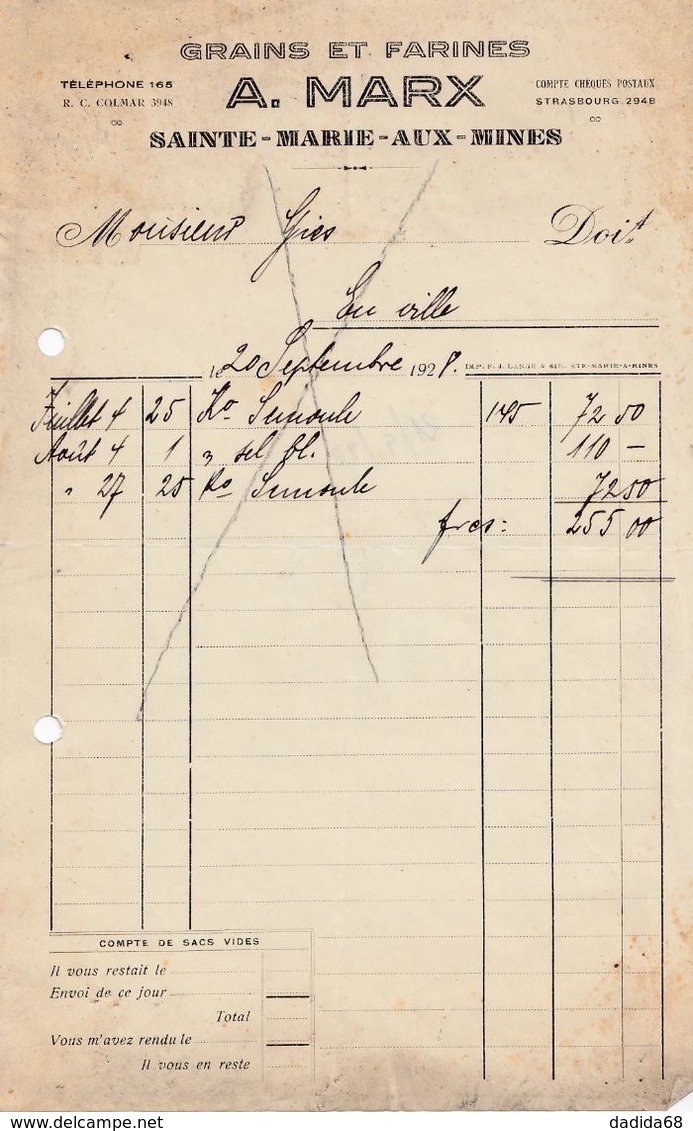 GRAINS ET FARINES
TÉLÉPHONE 165
R. C. COLMAR 3948
A. MARX
COMPTE CHÈQUES POSTAUX
STRASBOURG 2948
SAINTE-MARIE-AUX-MINES
Monsieur Gies Doit
En ville
le 20 Septembre 1928.
IMP. F. J. LANGE & CIE. STE-MARIE-A-MINES
Juillet 4 25 Ko Semoule 145 72 50
Août 4 1 " sel bl. 110 —
" 27 25 Ko Semoule 72 50
frcs: 255 00
COMPTE DE SACS VIDES
Il vous restait le
Envoi de ce jour
Total
Vous m'avez rendu le
Il vous en reste
dadida68